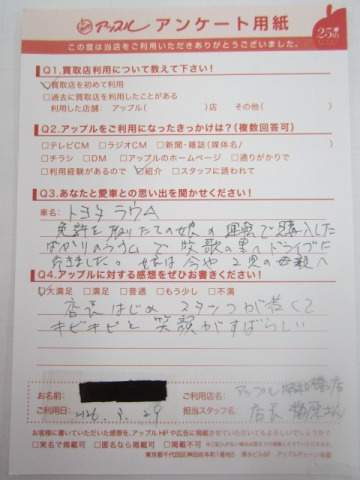 アップル アンケート用紙
25周年
この度は当店をご利用いただきありがとうございました。
Q1.買取店利用について教えて下さい!
☑買取店を初めて利用
□過去に買取店を利用したことがある
利用した店舗: アップル( )店 その他( )
Q2.アップルをご利用になったきっかけは?(複数回答可)
□テレビCM □ラジオCM □新聞・雑誌(媒体名/ )
□チラシ □DM □アップルのホームページ □通りがかりで
□利用経験があるので ☑紹介 □スタッフに誘われて
Q3.あなたと愛車との思い出を聞かせください!
車名: トヨタ ラウム
免許を取りたての娘の 運転で購入した
ばかりのラウムで 牧歌の里へドライブに
行きました。娘は今や2児の母親へ
Q4.アップルに対する感想をぜひお書きください!
☑大満足 □満足 □普通 □もう少し □不満
店長はじめ スタッフが若くて
キビキビと 笑顔がすばらしい
お名前:
ご利用店名: アップル
ご利用日: 3. 29
担当スタッフ名: 店長 さん
お客様に書いていただいた感想を、アップルHPや広告に掲載させていただいてもよろしいでしょうか?
□実名で掲載可 □匿名なら掲載可 □掲載不可
東京都千代田区神田岩本町1番地5 清水ビル6F アップルチェーン本部